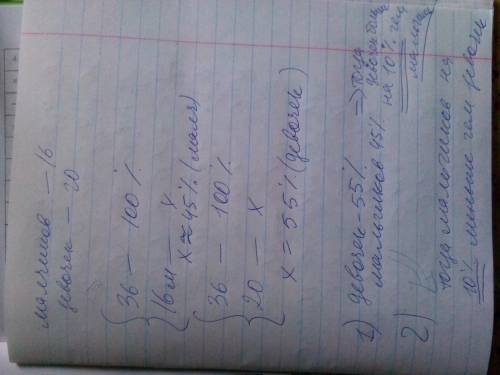 мальчиков — 16
девочек — 20
36 — 100%
16м — x
x ≈ 45% (мальч)
36 — 100%
20 — x
x = 55% (девочек)
1) девочек - 55% => тогда
мальчиков 45% девочек больше
на 10% чем
мальчиков
2) тогда мальчиков на
10% меньше чем девочек